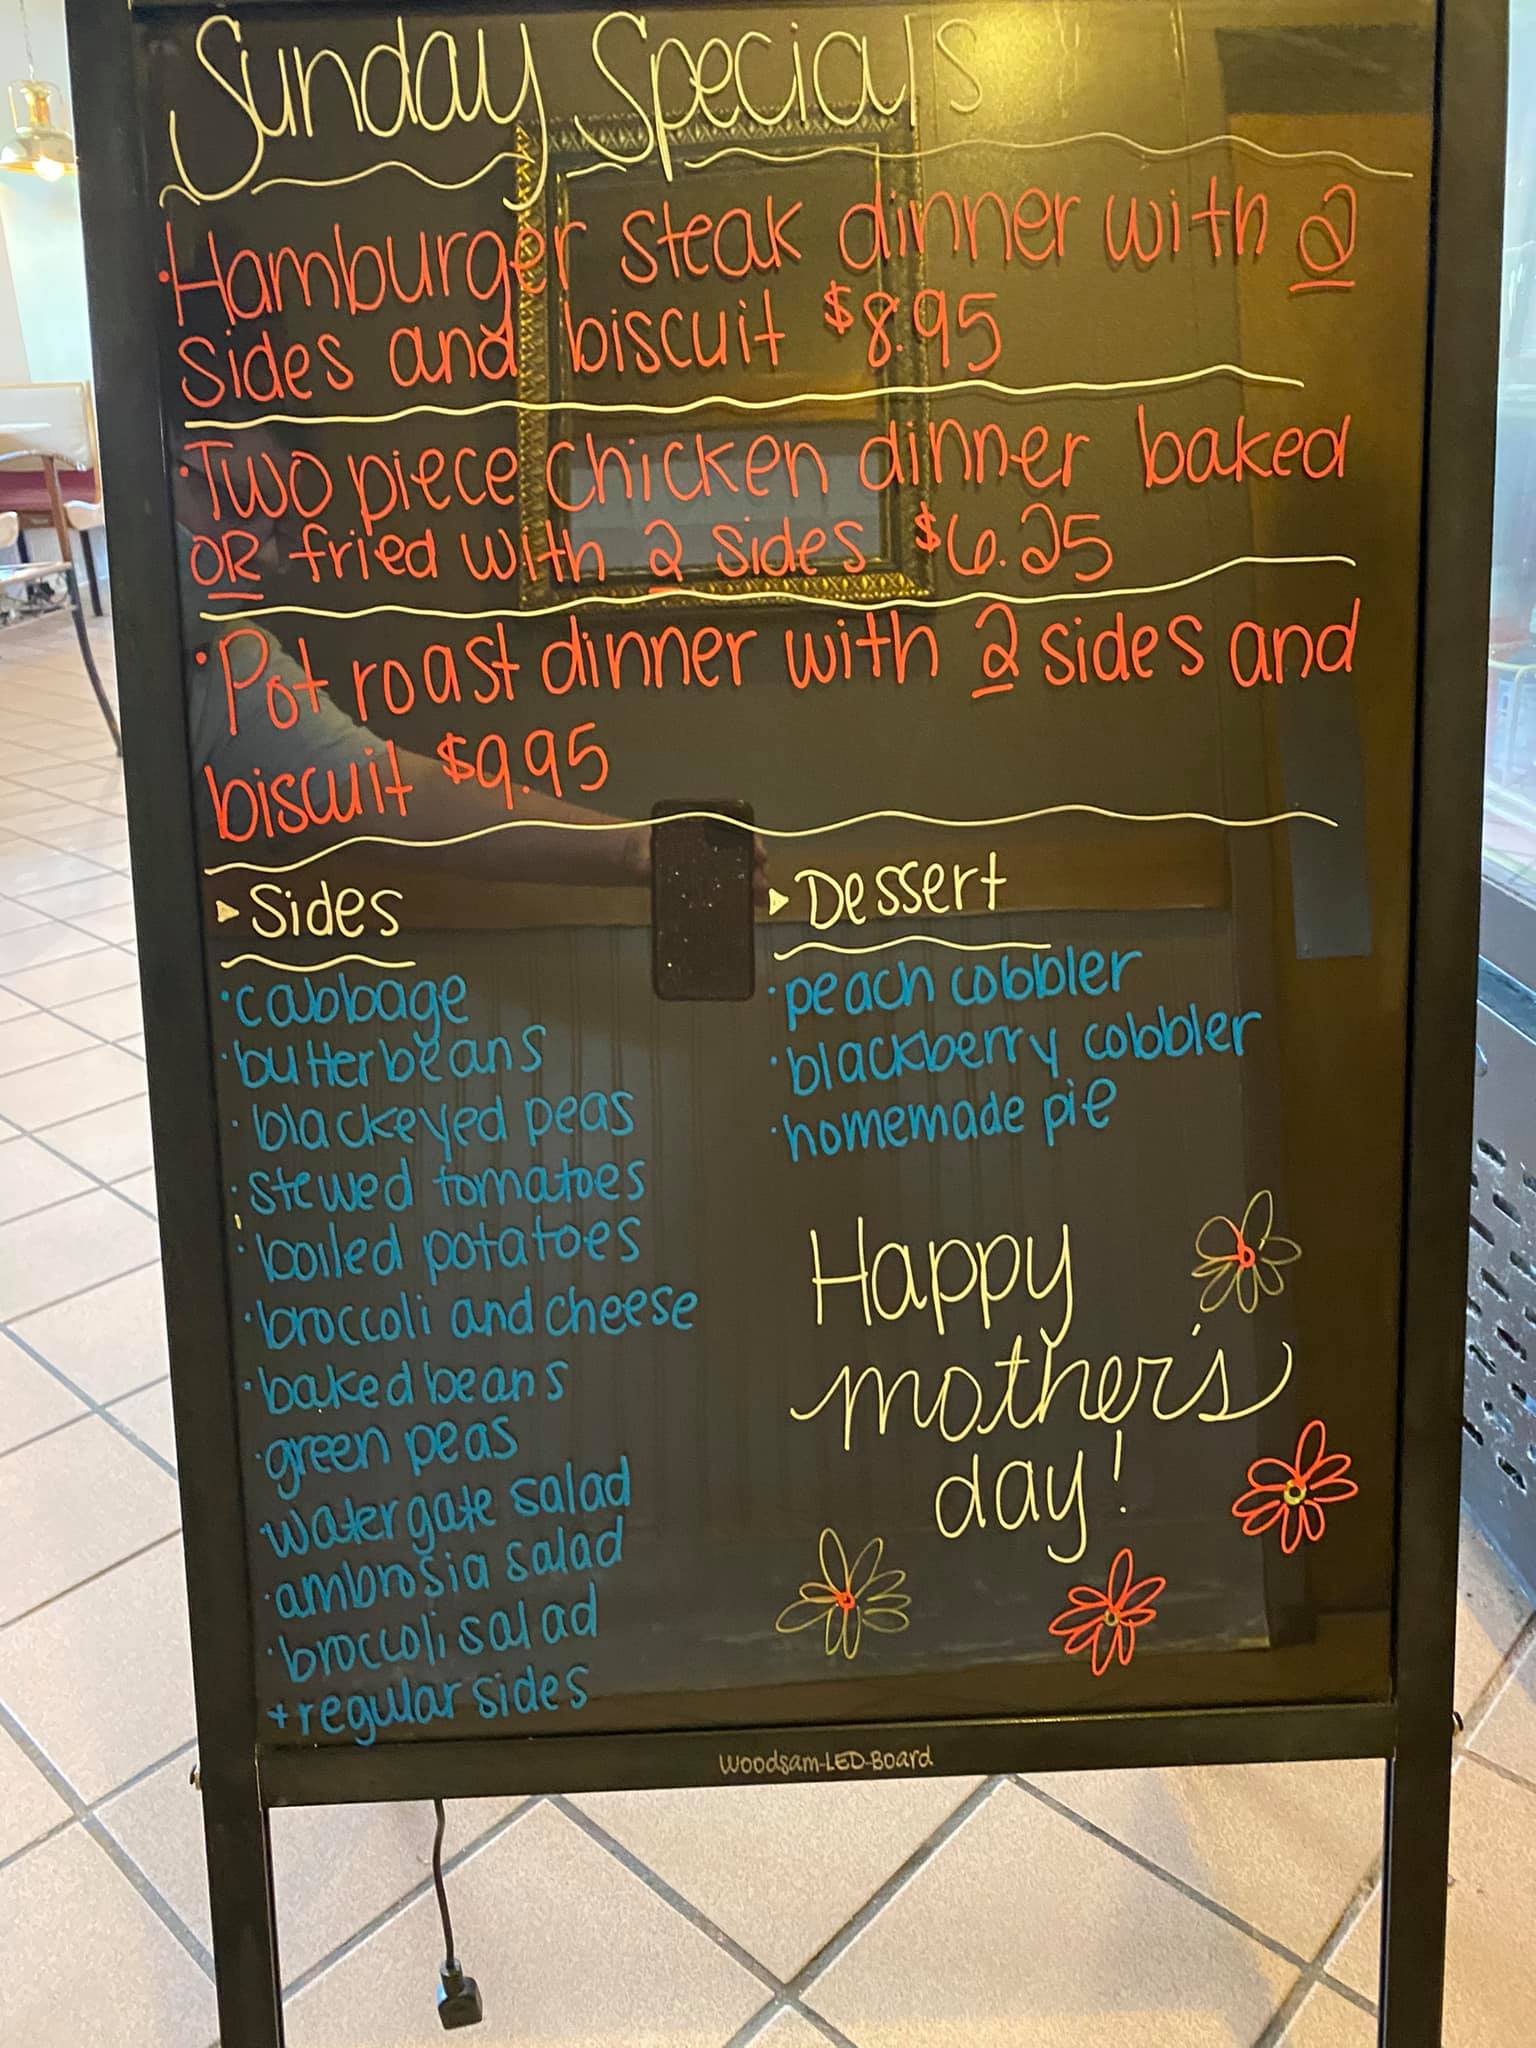 Sunday Specials
·Hamburger steak dinner with 2
sides and biscuit $8.95
·Two piece chicken dinner baked
OR fried with 2 sides $6.25
·Pot roast dinner with 2 sides and
biscuit $9.95
▸Sides
·cabbage
·butterbeans
·blackeyed peas
·stewed tomatoes
·boiled potatoes
·broccoli and cheese
·baked beans
·green peas
·watergate salad
·ambrosia salad
·broccoli salad
+regular sides
▸Dessert
·peach cobbler
·blackberry cobbler
·homemade pie
Happy
mother's
day!
Woodsam-LED-Board